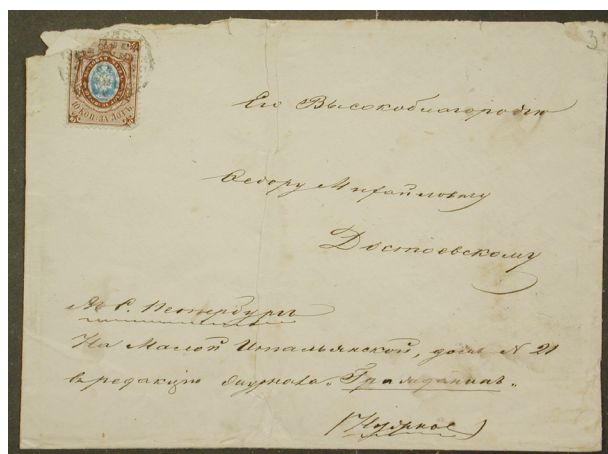 3
10 КОП. ЗА ЛОТЪ
Его Высокоблагородію
Ѳедору Михайловичу
Достоевскому
С. Петербургъ
На Малой Итальянской, домъ N 21
въ редакцію журнала „Гражданинъ“
(Нужное)